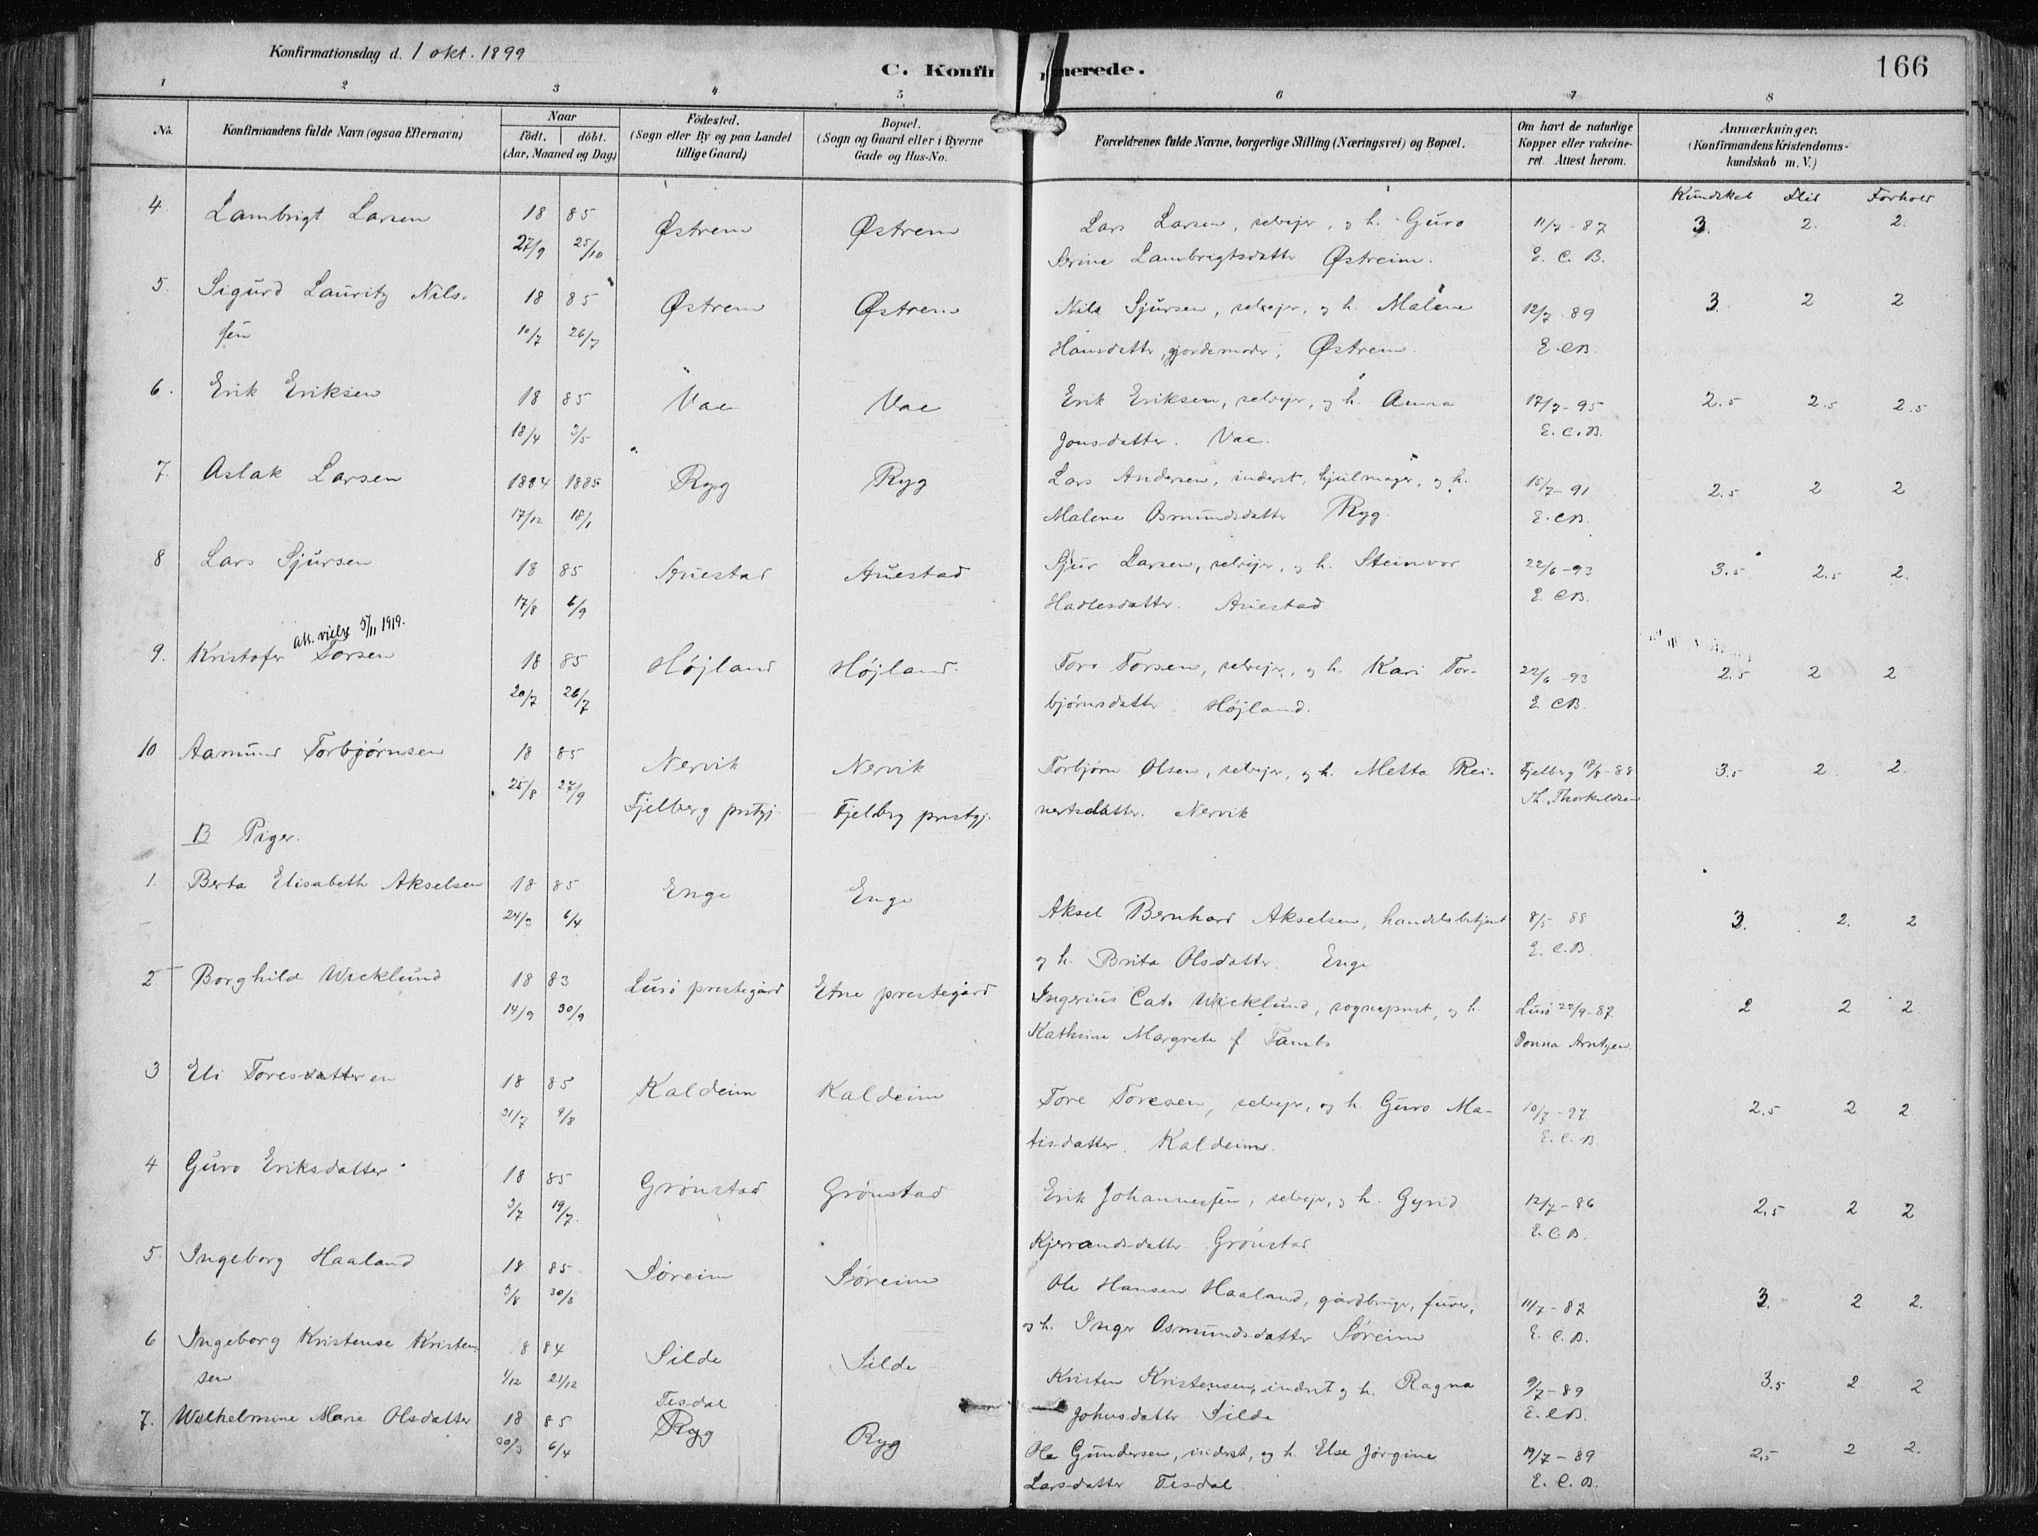 Konfirmationsdag d. 1 okt. 1899
C. Konfir merede.
166
1 2 3 4 5 6 7 8
No. Konfirmandens fulde Navn (ogsaa Efternavn) Naar födt. döbt. (Aar, Maaned og Dag) Födested. (Sogn eller By og paa Landet tillige Gaard) Bopæl. (Sogn og Gaard eller i Byerne Gade og Hus-No. Forældrenes fulde Navne, borgerlige Stilling (Næringsvei) og Bopæl. Om havt de naturlige Kopper eller vakcineret. Attest herom. Anmærkninger. (Konfirmandens Kristendomskundskab m. V.)
Kundskab Flid Forhold
4. Lambrigt Larsen 18 85 Østrem Østrem Lars Larsen, selvejer, og h. Guro 11/7-87 3. 2. 2.
27/9 25/10 Serine Lambrigtsdatter Østreim. E. C. B.
5. Sigurd Lauritz Nils- 18 85 Østrem Østrem Nils Sjursen, selvejer, og h. Malene 12/7-89 3. 2 2
sen 10/7 26/7 Hansdatter, gjordemoder, Østrem. E.CB.
6. Erik Eriksen 18 85 Vae Vae Erik Eriksen, selvejer, og h. Anna 17/7-95 2.5 2.5 2.5
18/4 3/5 Jonsdatter. Vae. E.C.B.
7. Aslak Larsen 1884 1885 Ryg Ryg Lars Andersen, inderst, hjulmager, og h. 15/7-91 2.5 2 2
17/12 18/1 Malene Osmundsdatter Ryg. E.CB.
8 Lars Sjursen 18 85 Auestad Auestad Sjur Larsen, selvejer, og h. Steinvor 22/6-93 3.5 2.5 2.
17/8 6/9 Hadlesdatter. Auestad E CB.
att. vielse 5/11 1919.
9. Kristofer Torsen 18 85 Højland Højland. Tore Torsen, selvejer, og h. Kari Tor- 22/6-93 2.5 2 2
20/7 26/7 bjørnsdatter. Højland. E CB.
10 Aamund Torbjørnsen 18 85 Nervik Nervik Torbjørn Olsen, selvejer, og h. Metta Rei- Fjelberg 18/8-88 3.5 2 2.
25/8 27/9 Fjelberg prstgj. Fjelberg prestgj. nertsdatter. Nervik Th. Thorkildsen
B Piger.
1. Berta Elisabeth Akselsen 18 85 Enge Enge Aksel Bernhard Akselsen, handelsbetjent 8/5 88 3. 2. 2
24/3 6/4 og h. Brita Olsdatter. Enge E.C.B.
2 Borghild Wicklund 18 83 Lurö prestegård Etne prestegård Ingerius Cato Wicklund, sogneprest, og h. Lurö 22/9-87. 2 2 2.
14/9 30/9 Kathrine Margrete f Donna Arntzen.
3 Eli Toresdatteren 18 85 Kaldeim Kaldeim Tore Toresen, selvejer, og h. Guro Ma- 10/7-97 2.5 2 2
31/7 9/8 tisdatter. Kaldeim. E.C.B.
4 Guro Eriksdatter 18 85 Grönstad Grönstad Erik Johannessen, selvejer, og h. Gyrid 12/7-86 2.5 2 2
3/7 19/7. Kjerrandsdatter. Grönstad E.C.B.
5. Ingeborg Haaland 18 85 Søreim Søreim Ole Hansen Haaland, gårdbruger, furer, 11/7-87 3. 2 2.
3/8 30/8 og h. Inger Osmundsdatter Søreim E.C.B.
6 Ingeborg Kristense Kristen- 8 84 Silde Silde Kristen Kristensen, inderst og h. Ragna 9/7-89 3.5 2 2
sen 1/12 21/12 Johnsdatter Silde E.CB.
7. Wilhelmine Marie Olsdatter 18 85 Tesdal Ryg Ryg Ole Gundersen, inderst, og h. Else Jørgine 19/7-89 2.5 2 2.
30/3 6/4 Larsdatter Tesdal. E.C.B.